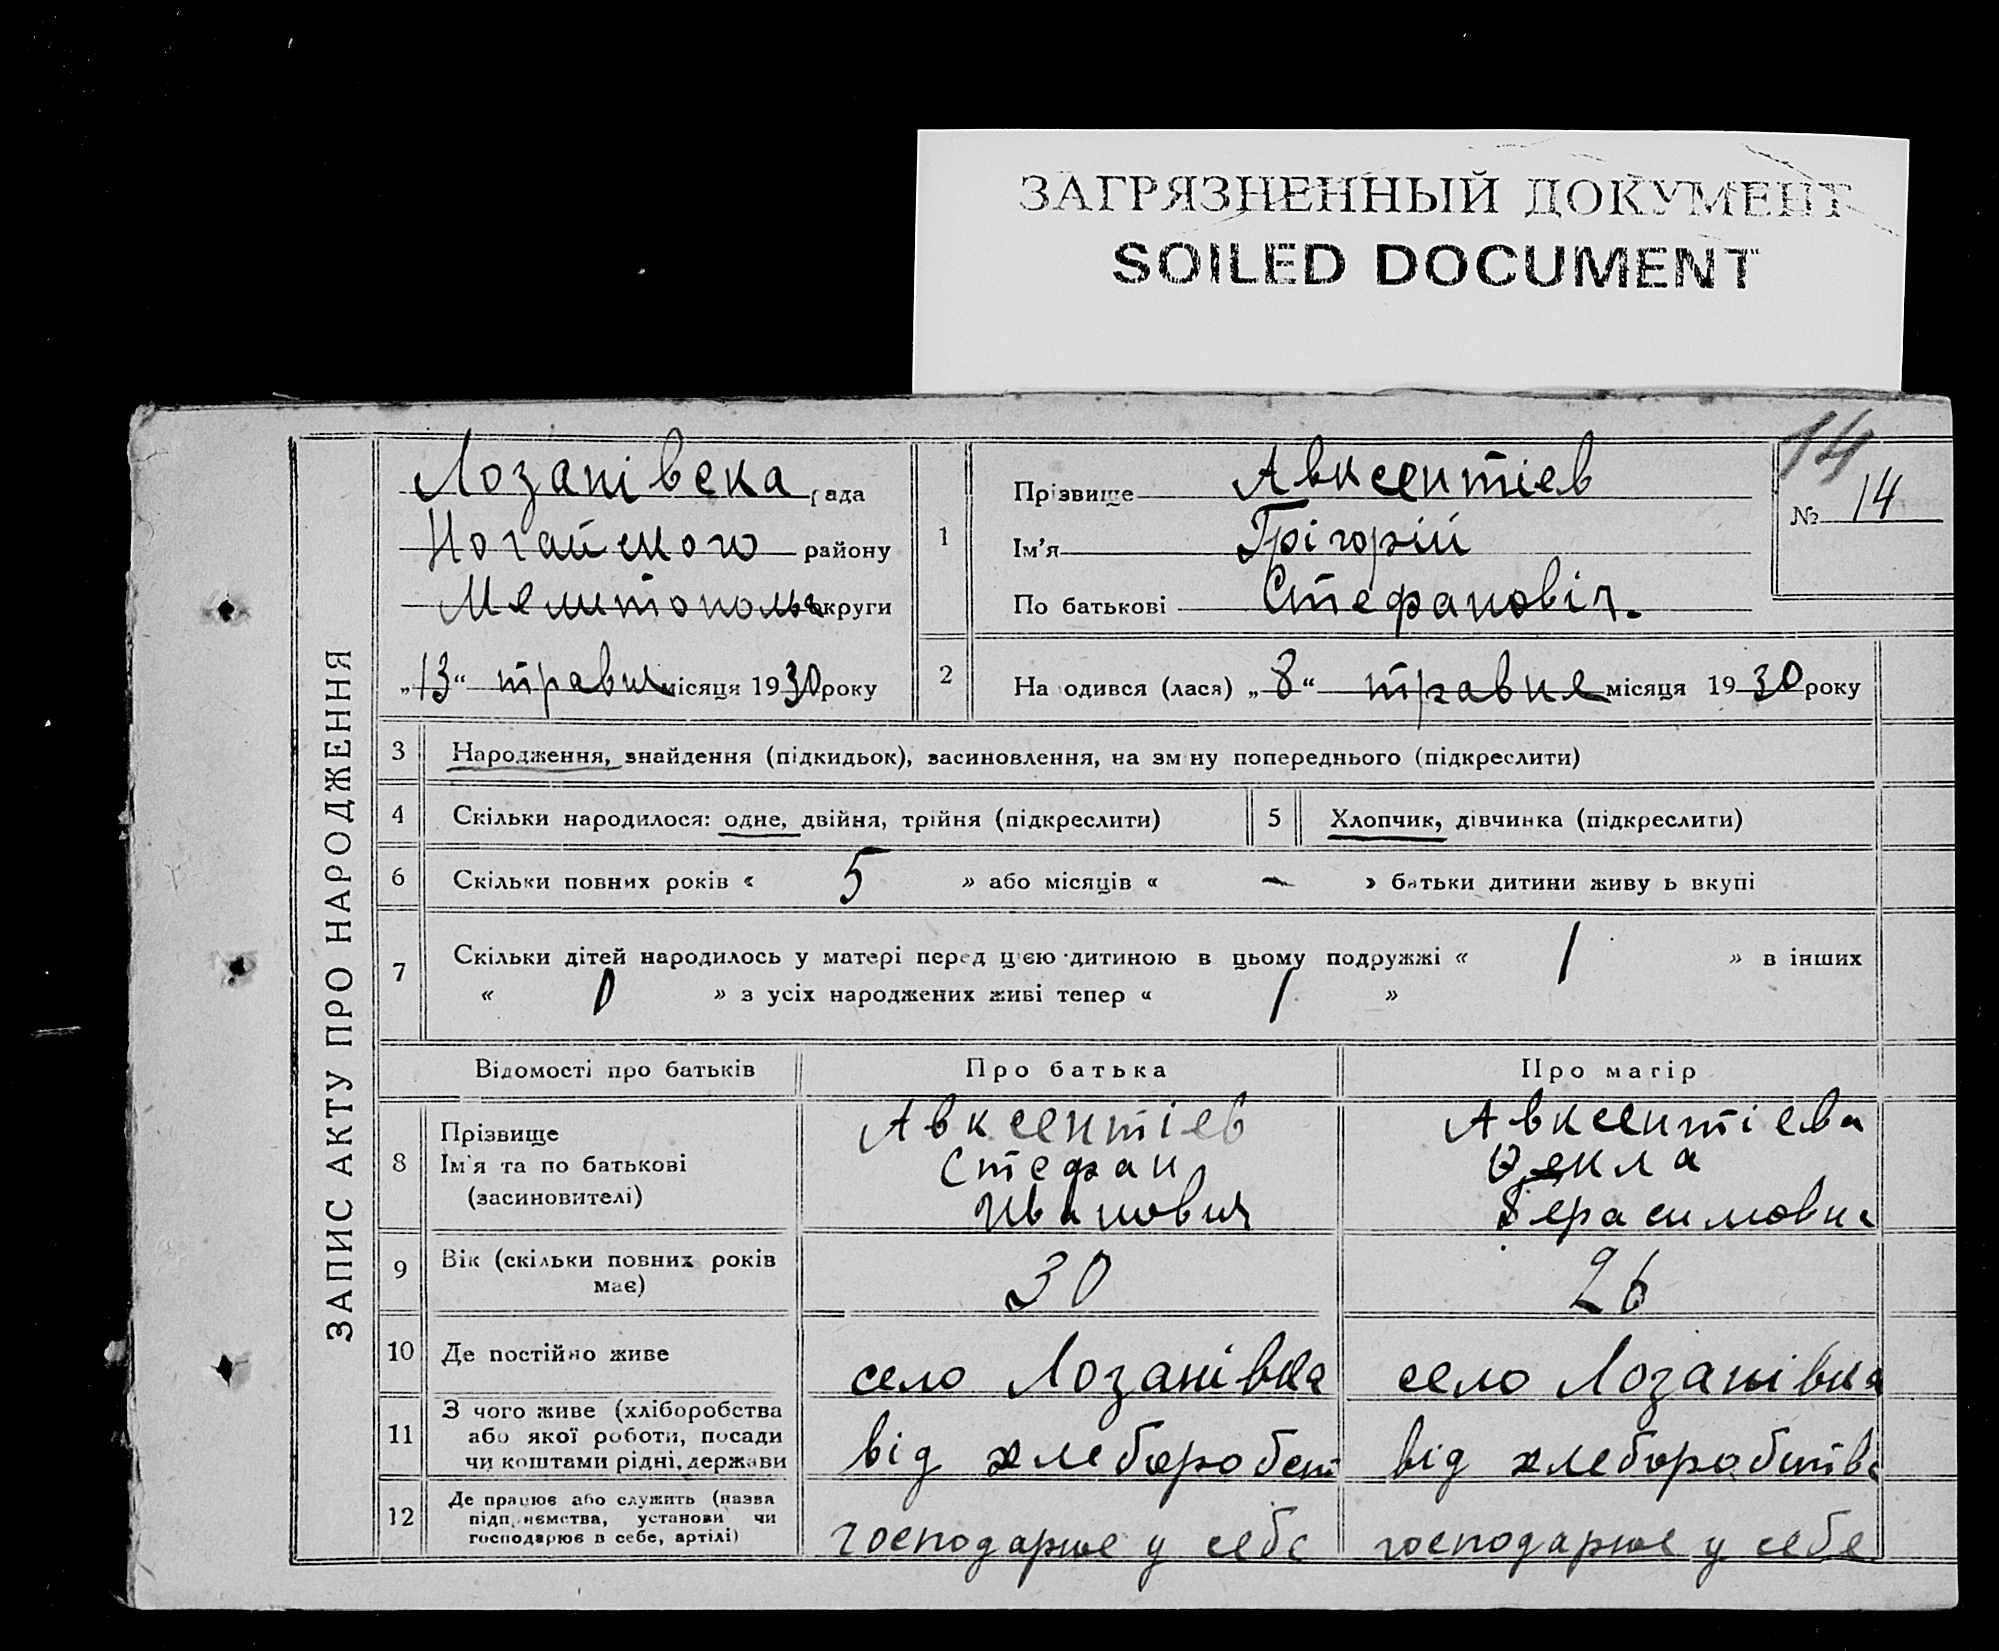 ЗАГРЯЗНЕННЫЙ ДОКУМЕНТ
SOILED DOCUMENT
14
ЗАПИС АКТУ ПРО НАРОДЖЕННЯ
Лозанівска рада
Ногайского району
Мелитополь округи
„13“ травня місяця 1930 року
1
Прізвище Авксентіев
Ім'я Грігорій
По батькові Стефановіч.
№ 14
2 Народився (лася) „8“ травня місяця 1930 року
3 Народження, знайдення (підкидьок), засиновлення, на зміну попереднього (підкреслити)
4 Скільки народилося: одне, двійня, трійня (підкреслити) 5 Хлопчик, дівчинка (підкреслити)
6 Скільки повних років « 5 » або місяців « – » батьки дитини живуть вкупі
7 Скільки дітей народилось у матері перед цією дитиною в цьому подружжі « 1 » в інших
« 0 » з усіх народжених живі тепер « 1 »
Відомості про батьків Про батька Про матір
8 Прізвище Авксентіев Авксентіева
Ім'я та по батькові Стефан Фекла
(засиновителі) Иванович Герасимовна
9 Вік (скільки повних років має) 30 26
10 Де постійно живе село Лозанівка село Лозанівка
11 З чого живе (хліборобства або якої роботи, посади чи коштами рідні, держави від хлеборобст від хлеборобства
12 Де працює або служить (назва підприємства, установи чи господарює в себе, артілі) господарює у себе господарює у себе